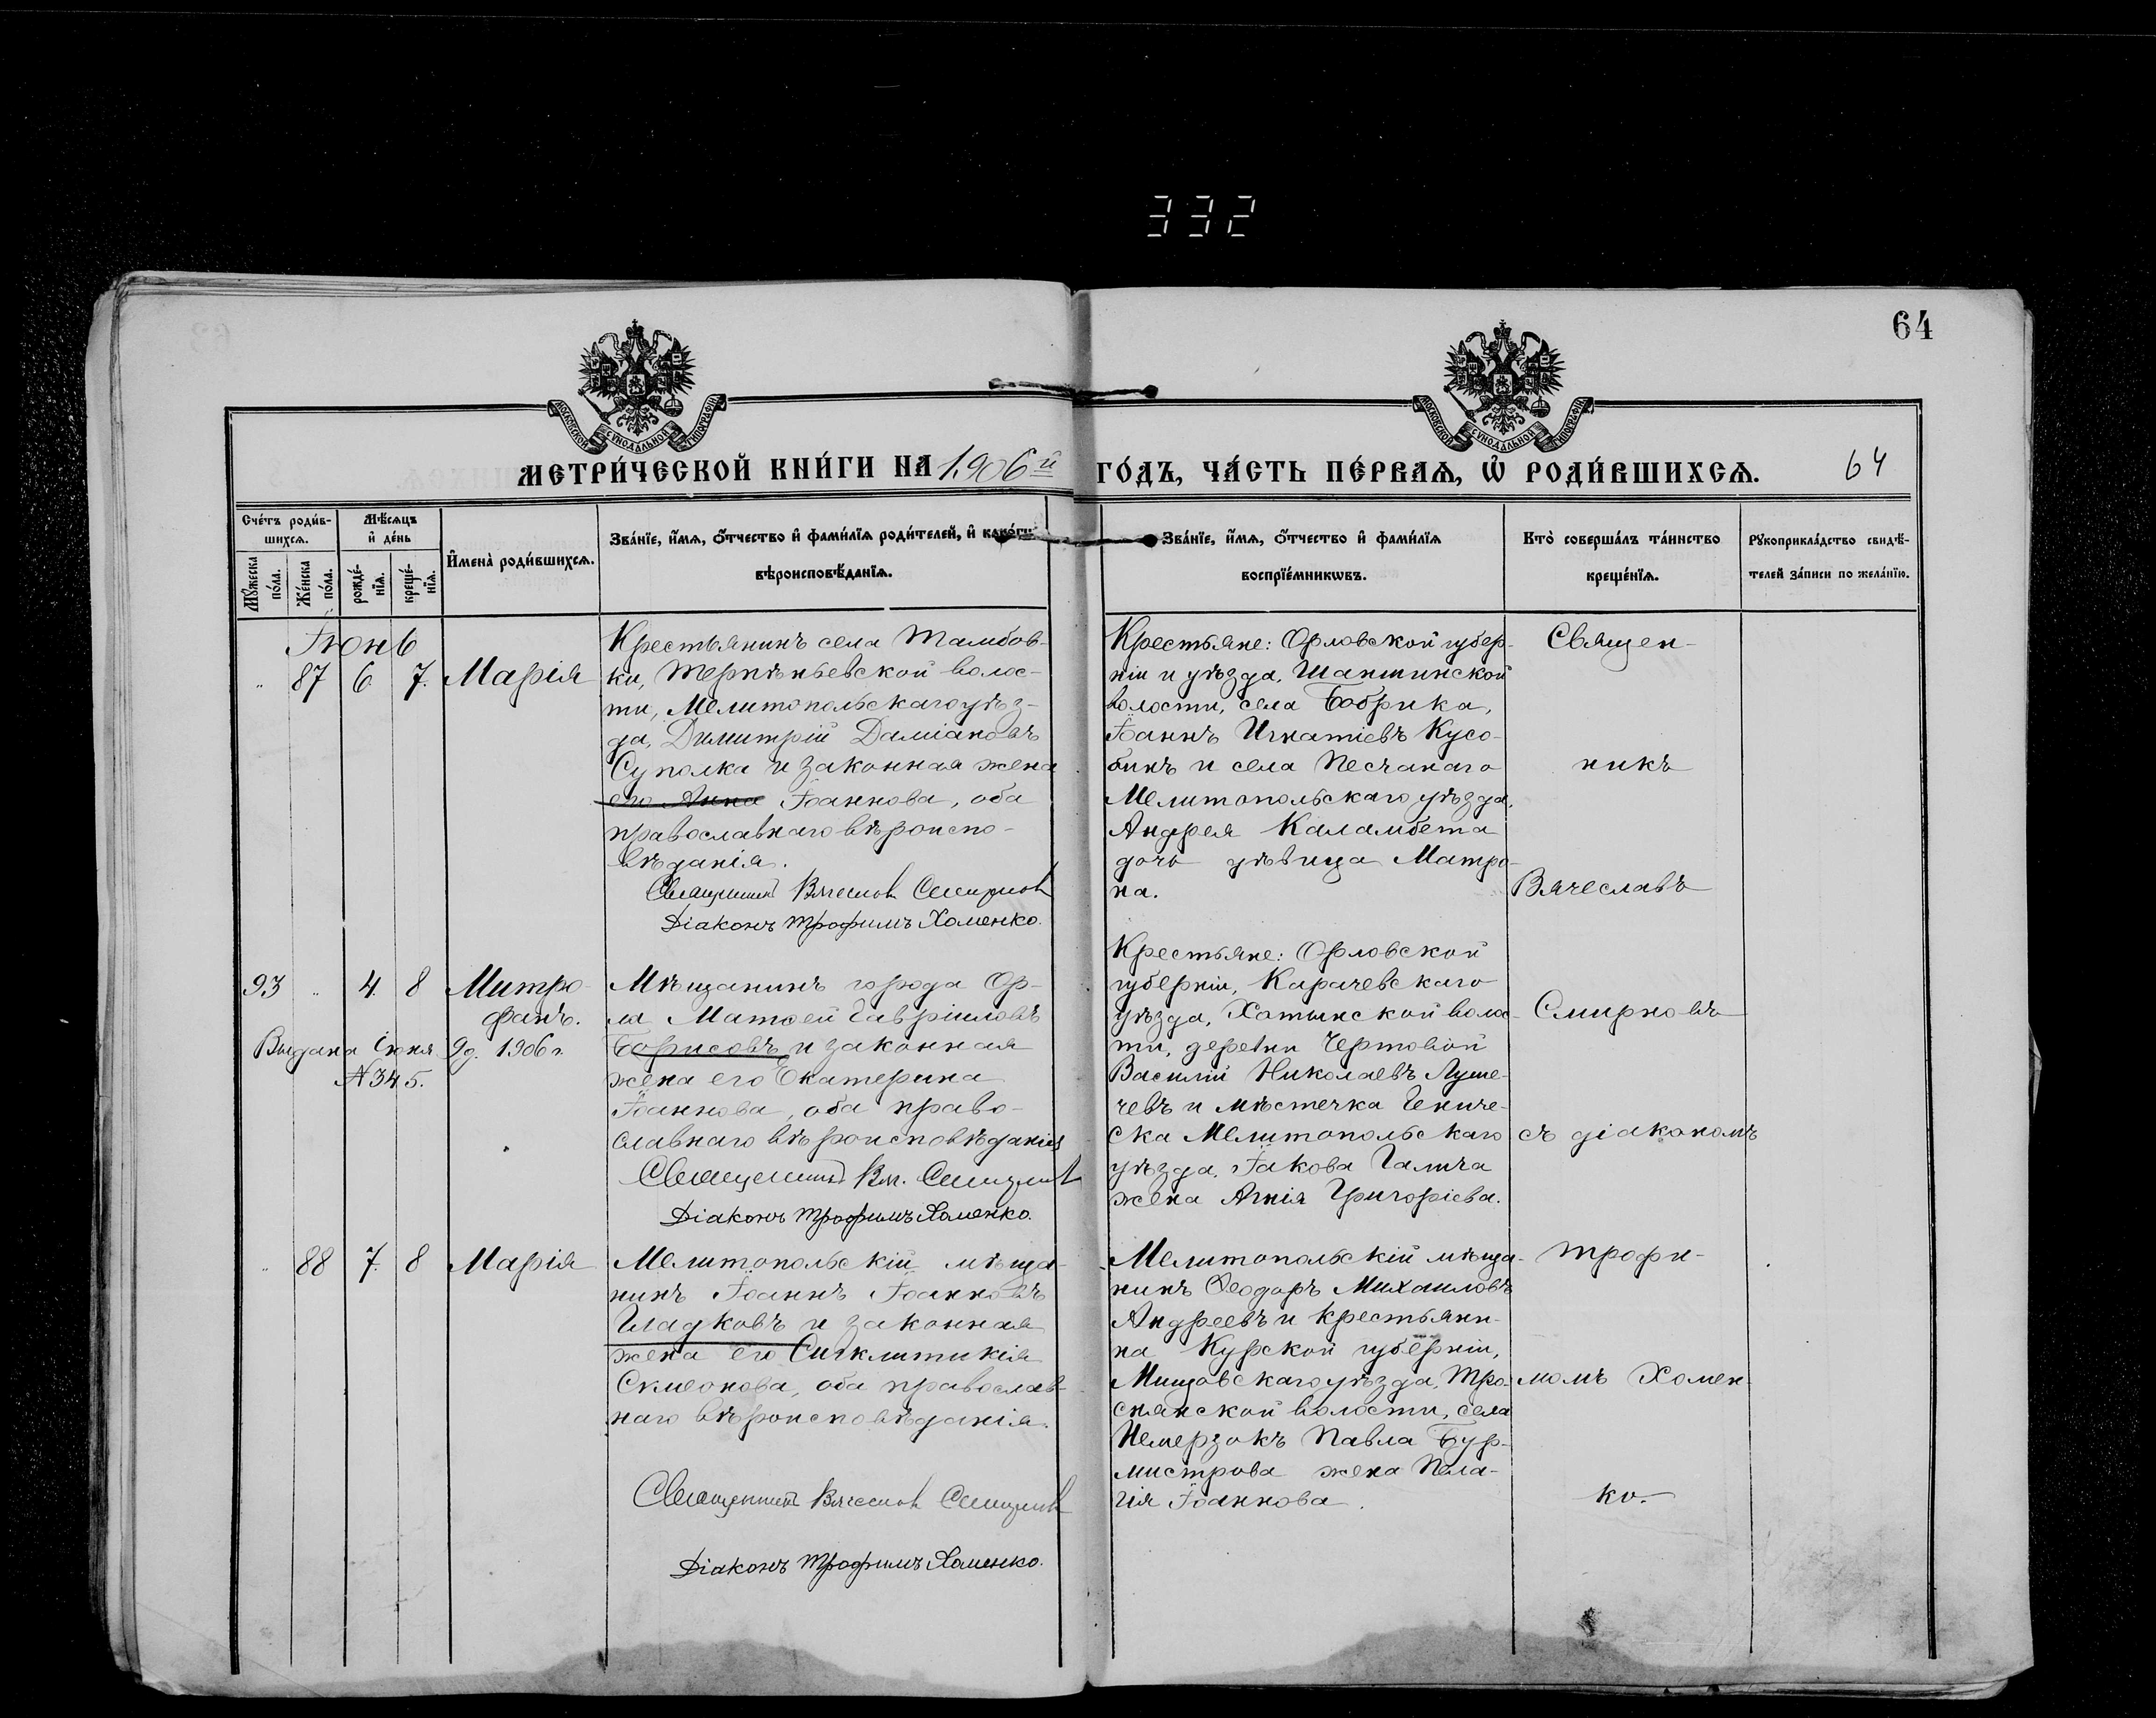 332
64
МОСКОВСКОЙ СѴНОДАЛЬНОЙ ТИПОГРАФІИ
МОСКОВСКОЙ СѴНОДАЛЬНОЙ ТИПОГРАФІИ
МЕТРИ́ЧЕСКОЙ КНИ́ГИ НА 1906й
ГО́ДЪ, ЧА́СТЬ ПЕ́РВАѦ, Ѡ҆ РОДИ́ВШИХСѦ.
64
Сче́тъ роди́в-
шихсѧ.
Мѣ́сѧцъ
и҆ де́нь
Мꙋ́жеска
по́ла.
Же́нска
по́ла.
рожде́-
нїѧ.
креще́-
нїѧ.
И҆мена̀ роди́вшихсѧ.
Зва́нїе, и҆́мѧ, ѻ҆́тчество и҆ фамѵ́лїѧ роди́телей, и҆ како́гѡ
вѣроисповѣ́данїѧ.
Зва́нїе, и҆́мѧ, ѻ҆́тчество и҆ фамѵ́лїѧ
воспрїе́мникѡвъ.
Кто̀ соверша́лъ та́инство
креще́нїѧ.
Рꙋкоприкла́дство свидѣ́-
телей за́писи по жела́нїю.
Іюнь
" 87 6. 7. Марія
Крестьянинъ села Тамбов-
ки, Терпѣньевской волос-
ти, Мелитопольскаго уѣз-
да, Димитрій Даміановъ
Суполка и законная жена
его Анна Іоаннова, оба
православнаго вѣроиспо-
вѣданія.
Священникъ Вячеславъ Смирновъ
Діаконъ Трофимъ Хоменко.
Крестьяне: Орловской губер-
ніи и уѣзда, Шахтинской
волости, села Бобрика,
Іоаннъ Игнатіевъ Кусо-
бинъ и села Песчанаго
Мелитопольскаго уѣзда,
Андрея Каламбета
дочь дѣвица Матро-
на.
Священ-
никъ
Вячеславъ
93 " 4. 8 Митро-
фанъ.
Выдана Іюня 9 д. 1906 г.
№ 345.
Мѣщанинъ города Ор-
ла Матѳей Гавріиловъ
Борисовъ и законная
жена его Екатерина
Іоаннова, оба право-
славнаго вѣроисповѣданія
Священникъ Вяч. Смирновъ
Діаконъ Трофимъ Хоменко.
Крестьяне: Орловской
губерніи, Карачевскаго
уѣзда, Хотынской волос-
ти, деревни Чертовой
Василій Николаевъ Луне-
чевъ и мѣстечка Гениче-
ска Мелитопольскаго
уѣзда, Іакова Галича
жена Агнія Григоріева.
Смирновъ
съ діакономъ
" 88 7. 8 Марія
Мелитопольскій мѣща-
нинъ Іоаннъ Іоанновъ
Гладковъ и законная
жена его Сигклитикія
Симеонова, оба православ-
наго вѣроисповѣданія.
Священникъ Вячеславъ Смирновъ
Діаконъ Трофимъ Хоменко.
Мелитопольскій мѣща-
нинъ Ѳеодоръ Михаиловъ
Андреевъ и крестьяни-
на Курской губерніи,
Мищовскаго уѣзда, Тро-
снянской волости, села
Немерзокъ Павла Бур-
мистрова жена Пела-
гія Іоаннова.
Трофи-
момъ Хомен-
ко.